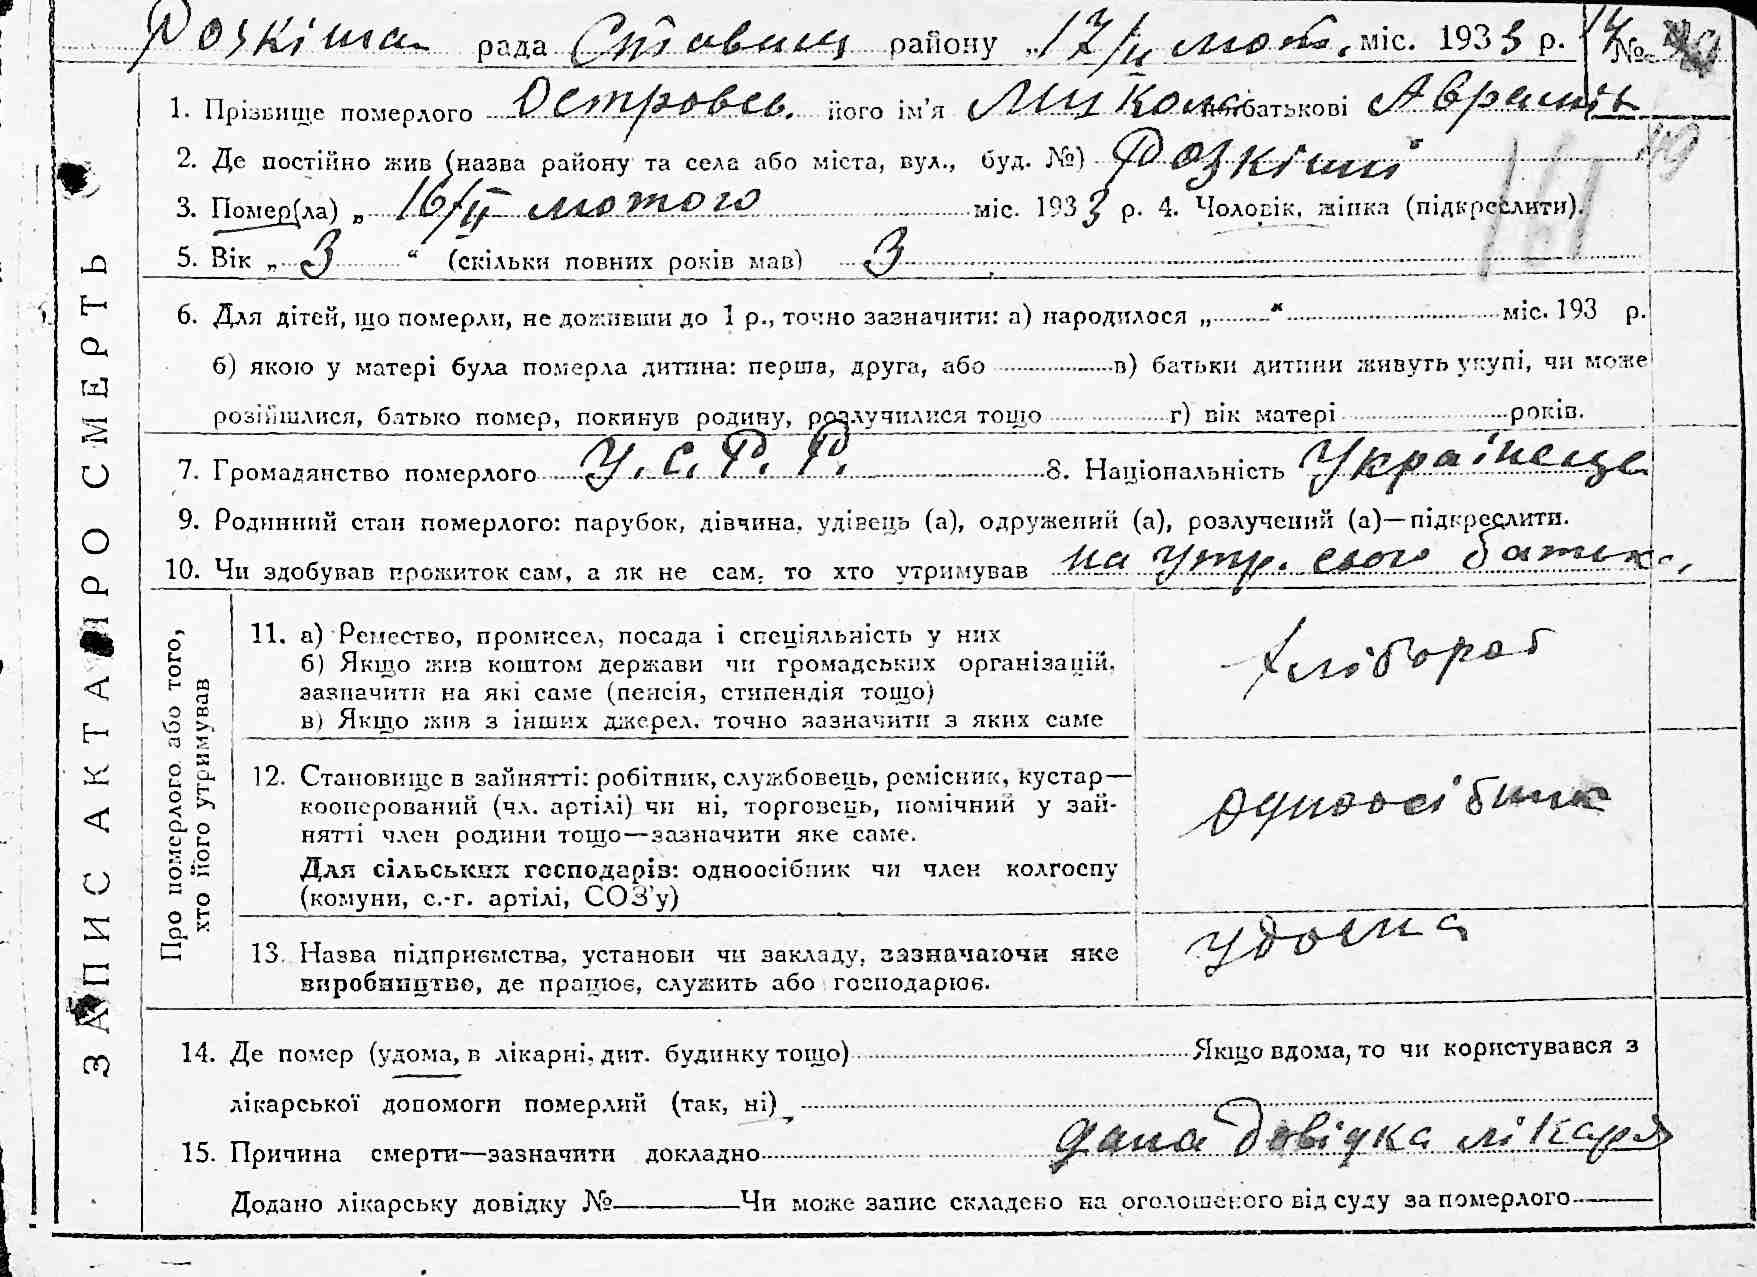 Розкішна рада Ставищ району „17/II лют. міс. 1933 р. 17 №
1. Прізвище померлого Островсь. його ім'я Микола по батькові Аврамів
49
2. Де постійно жив (назва району та села або міста, вул., буд. №) Розкішні
161
3. Помер(ла) „ 16/II лютого міс. 1933 р. 4. Чоловік, жінка (підкреслити).
5. Вік „ 3 “ (скільки повних років мав) 3
6. Для дітей, що померли, не доживши до 1 р., точно зазначити: а) народилося „ “ міс. 193 р.
б) якою у матері була померла дитина: перша, друга, або в) батьки дитини живуть укупі, чи може
розійшлися, батько помер, покинув родину, розлучилися тощо г) вік матері років.
7. Громадянство померлого У.С.Р.Р. 8. Національність Українець
9. Родинний стан померлого: парубок, дівчина, удівець (а), одружений (а), розлучений (а)—підкреслити.
10. Чи здобував прожиток сам, а як не сам, то хто утримував на утр. свого батьк.
ЗАПИС АКТА ПРО СМЕРТЬ
Про померлого або того,
хто його утримував
11. а) Ремество, промисел, посада і спеціяльність у них
б) Якщо жив коштом держави чи громадських організацій,
зазначити на які саме (пенсія, стипендія тощо)
в) Якщо жив з інших джерел, точно зазначити з яких саме
хлібороб
12. Становище в зайнятті: робітник, службовець, ремісник, кустар—
кооперований (чл. артілі) чи ні, торговець, помічний у зай-
нятті член родини тощо—зазначити яке саме.
Для сільських господарів: одноосібник чи член колгоспу
(комуни, с.-г. артілі, СОЗ'у)
одноосібник
13. Назва підприємства, установи чи закладу, зазначаючи яке
виробництво, де працює, служить або господарює.
удома
14. Де помер (удома, в лікарні, дит. будинку тощо) Якщо вдома, то чи користувався з
лікарської допомоги померлий (так, ні)
15. Причина смерти—зазначити докладно дана довідка лікаря
Додано лікарську довідку № Чи може запис складено на оголошеного від суду за померлого